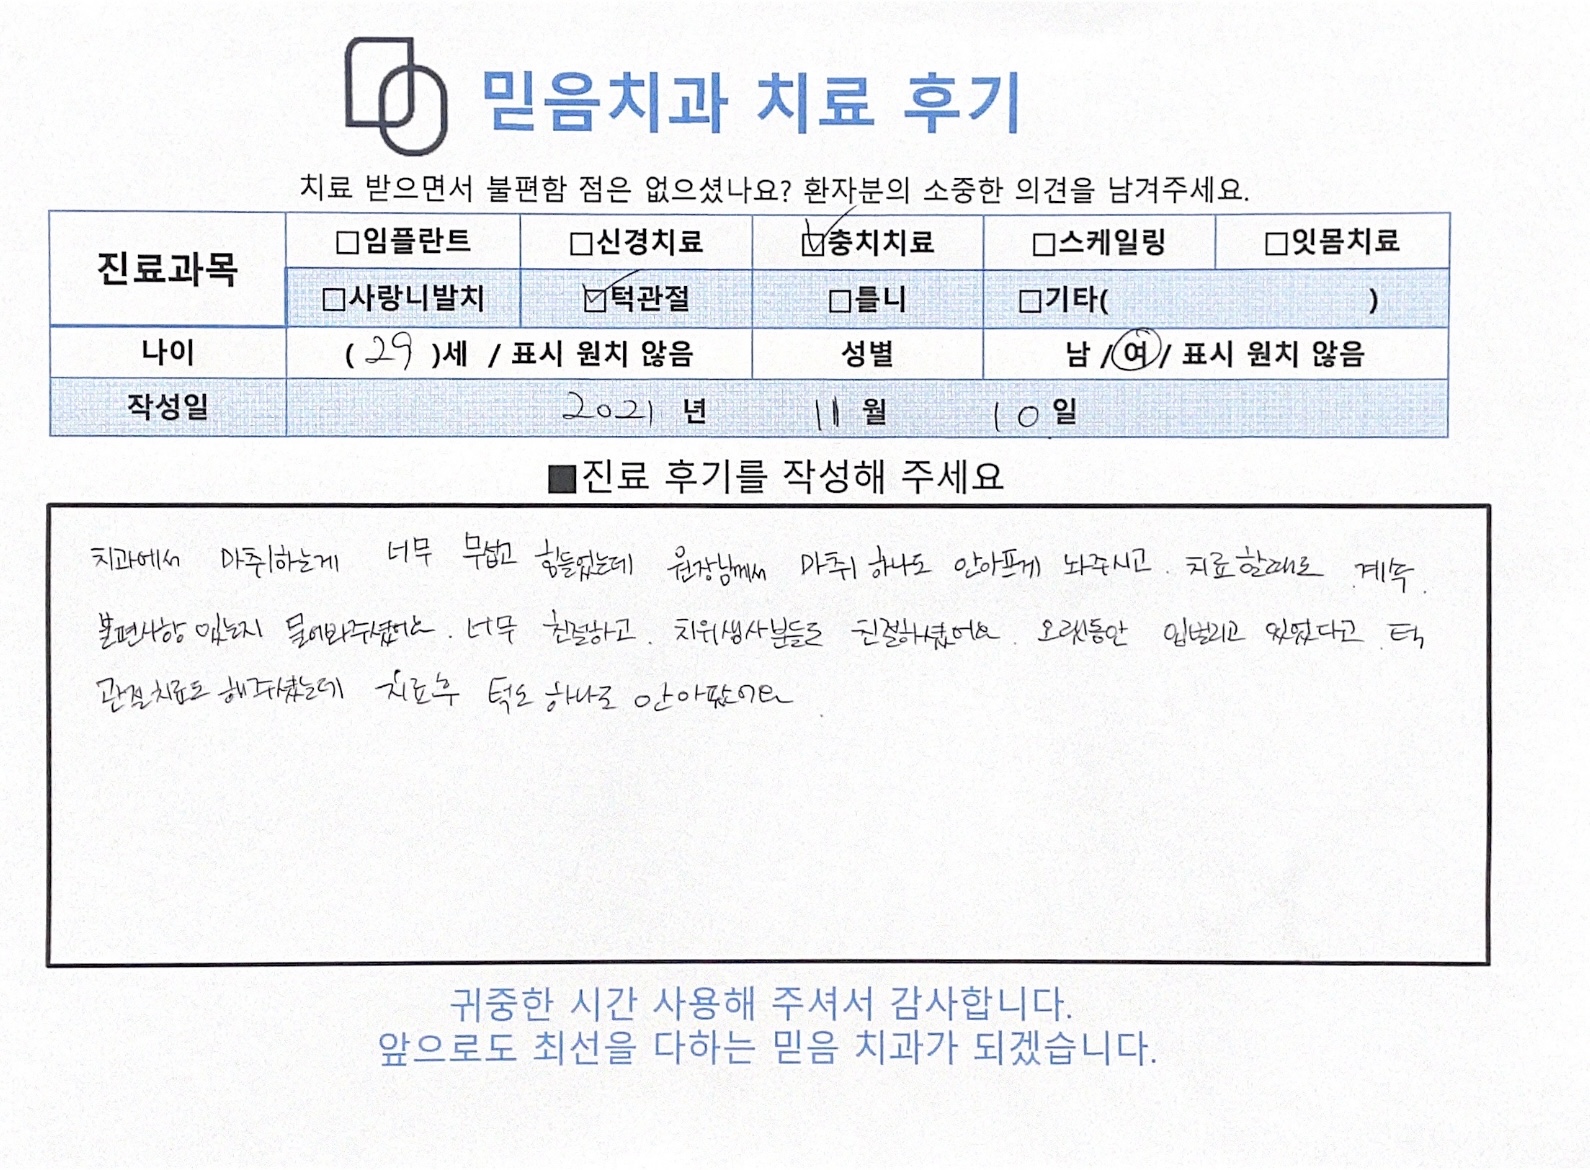 믿음치과 치료 후기
치료 받으면서 불편함 점은 없으셨나요? 환자분의 소중한 의견을 남겨주세요.
진료과목 □임플란트 □신경치료 ☑충치치료 □스케일링 □잇몸치료
□사랑니발치 ☑턱관절 □틀니 □기타( )
나이 ( 29 )세 / 표시 원치 않음 성별 남 / 여 / 표시 원치 않음
작성일 2021 년 11 월 10 일
■진료 후기를 작성해 주세요
치과에서 마취하는게 너무 무섭고 힘들었는데 원장님께서 마취 하나도 안아프게 놔주시고. 치료할때도 계속.
불편사항 있는지 물어봐주셨어요. 너무 친절하고. 치위생사분들도 친절하셨어요. 오랫동안 입벌리고 있었다고 턱
관절치료도 해주셨는데 치료후 턱도 하나도 안아팠어요.
귀중한 시간 사용해 주셔서 감사합니다.
앞으로도 최선을 다하는 믿음 치과가 되겠습니다.